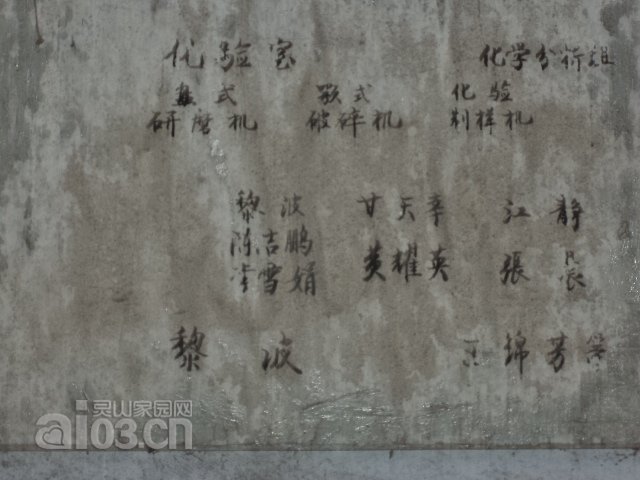 化验室 化学分析组
盘式 颚式 化验
研磨机 破碎机 制样机
黎波 甘天幸 江静
陈吉鹏 黄耀英 張晨
李雪娟
黎波 锦芳
灵山家园网
ai03.cn